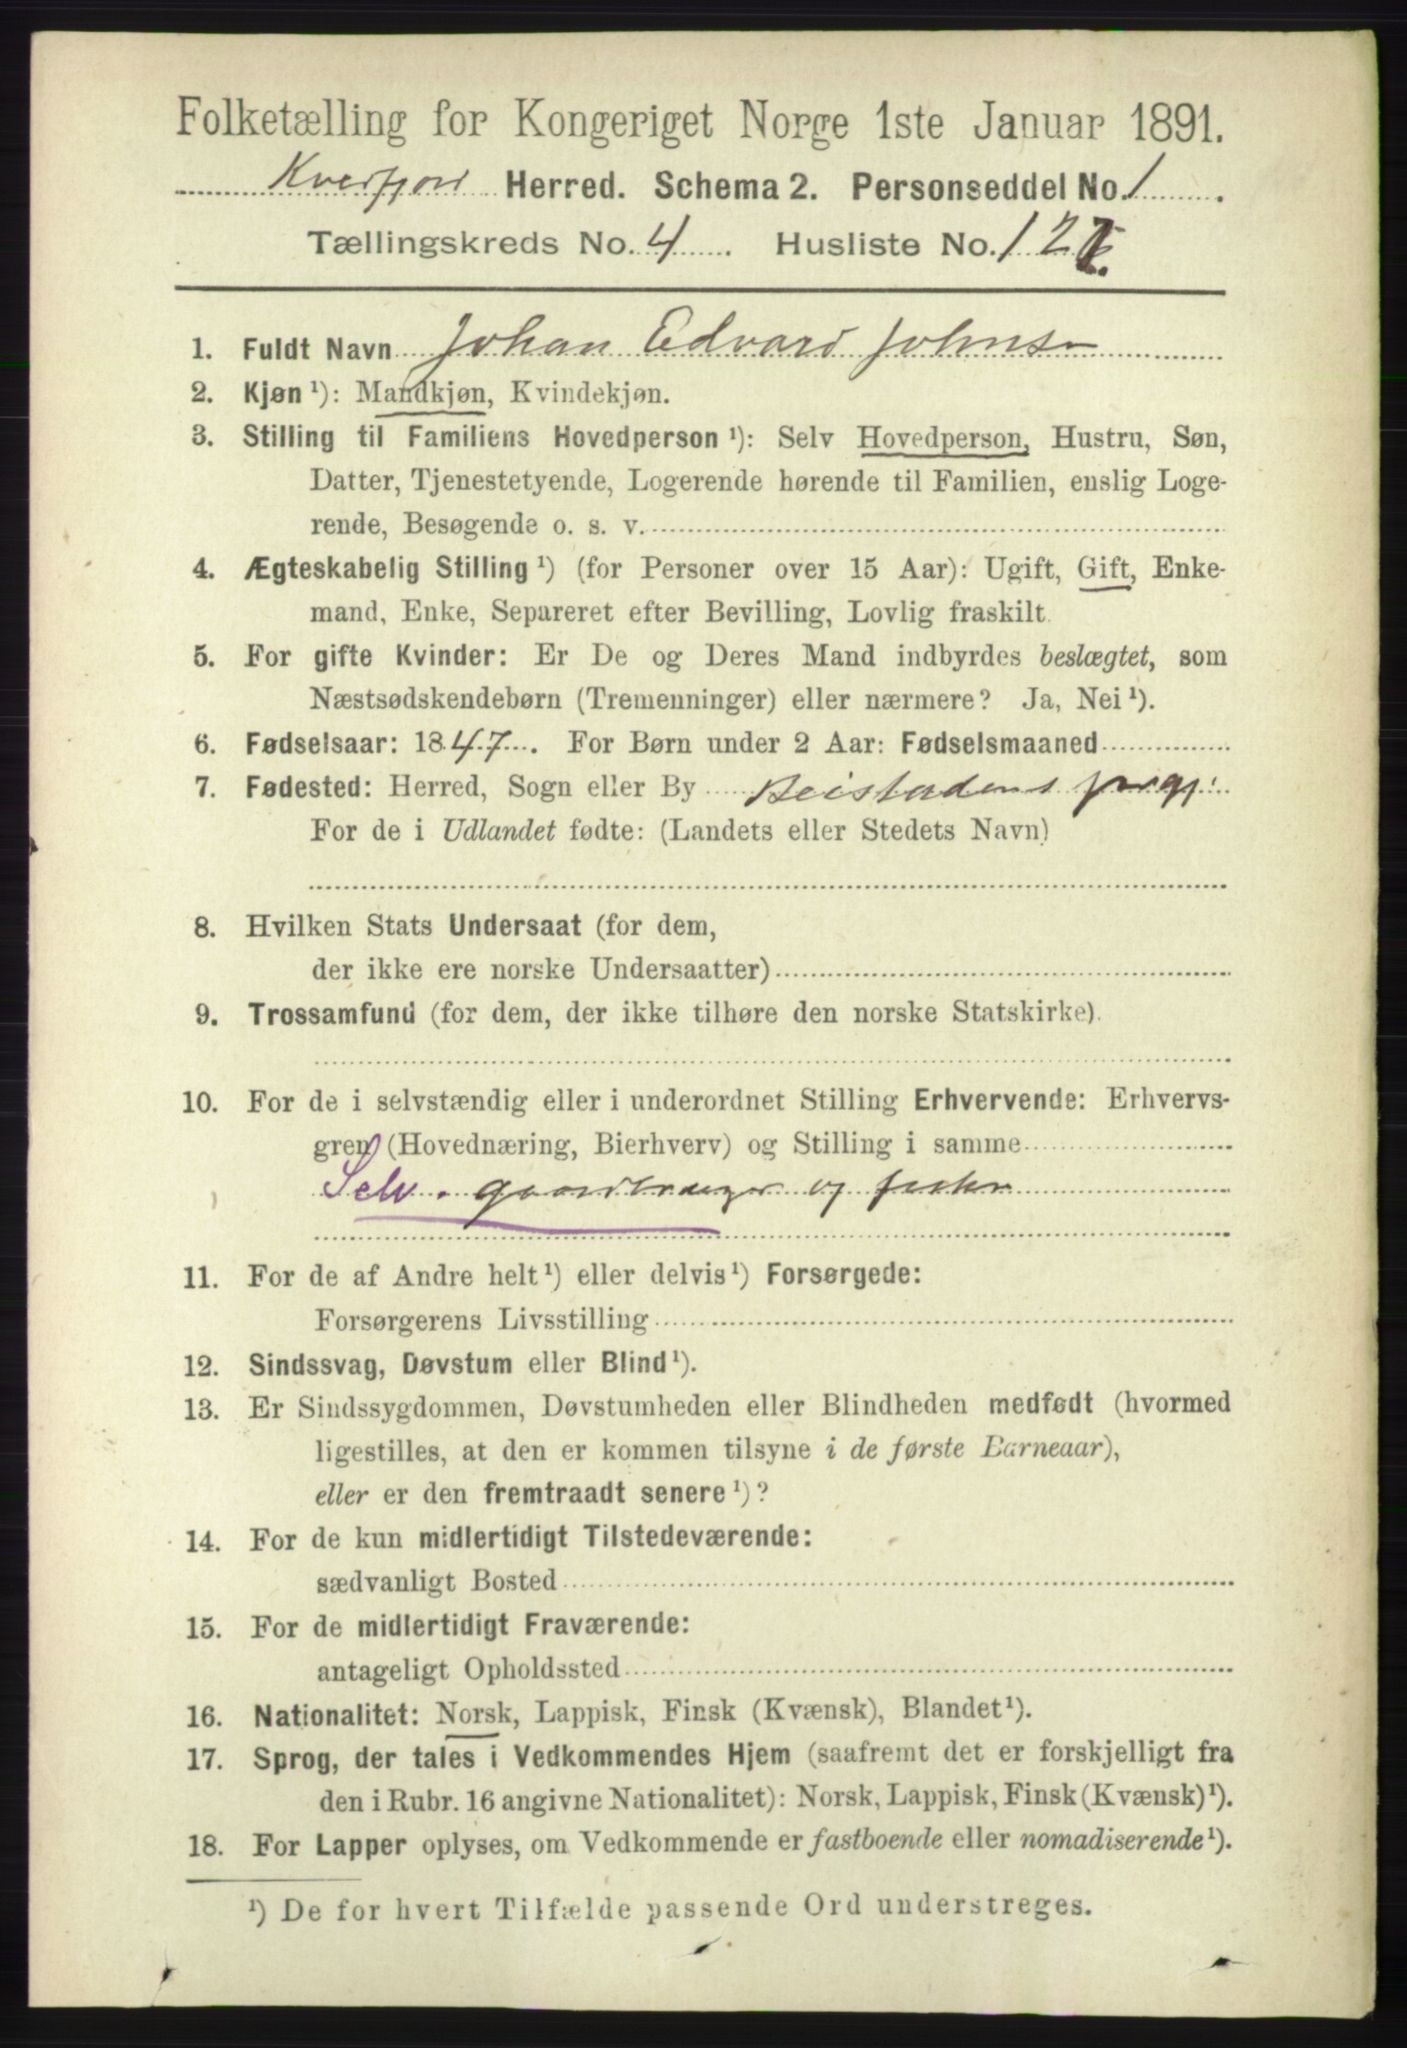 Folketælling for Kongeriget Norge 1ste Januar 1891.
Kvæfjord Herred. Schema 2. Personseddel No. 1.
Tællingskreds No. 4. Husliste No. 12
1. Fuldt Navn Johan Edvard Johnsen
2. Kjøn ¹): Mandkjøn, Kvindekjøn.
3. Stilling til Familiens Hovedperson ¹): Selv Hovedperson, Hustru, Søn,
Datter, Tjenestetyende, Logerende hørende til Familien, enslig Loge-
rende, Besøgende o. s. v.
4. Ægteskabelig Stilling ¹) (for Personer over 15 Aar): Ugift, Gift, Enke-
mand, Enke, Separeret efter Bevilling, Lovlig fraskilt
5. For gifte Kvinder: Er De og Deres Mand indbyrdes beslægtet, som
Næstsødskendebørn (Tremenninger) eller nærmere? Ja, Nei ¹).
6. Fødselsaar: 1847. For Børn under 2 Aar: Fødselsmaaned
7. Fødested: Herred, Sogn eller By Beistadens prgj:
For de i Udlandet fødte: (Landets eller Stedets Navn)
8. Hvilken Stats Undersaat (for dem,
der ikke ere norske Undersaatter)
9. Trossamfund (for dem, der ikke tilhøre den norske Statskirke).
10. For de i selvstændig eller i underordnet Stilling Erhvervende: Erhvervs-
gren (Hovednæring, Bierhverv) og Stilling i samme
Selv. gaardbruger og fisker
11. For de af Andre helt ¹) eller delvis ¹) Forsørgede:
Forsørgerens Livsstilling
12. Sindssvag, Døvstum eller Blind ¹).
13. Er Sindssygdommen, Døvstumheden eller Blindheden medfødt (hvormed
ligestilles, at den er kommen tilsyne i de første Barneaar),
eller er den fremtraadt senere ¹)?
14. For de kun midlertidigt Tilstedeværende:
sædvanligt Bosted
15. For de midlertidigt Fraværende:
antageligt Opholdssted
16. Nationalitet: Norsk, Lappisk, Finsk (Kvænsk), Blandet ¹).
17. Sprog, der tales i Vedkommendes Hjem (saafremt det er forskjelligt fra
den i Rubr. 16 angivne Nationalitet): Norsk, Lappisk, Finsk (Kvænsk) ¹).
18. For Lapper oplyses, om Vedkommende er fastboende eller nomadiserende ¹).
¹) De for hvert Tilfælde passende Ord understreges.